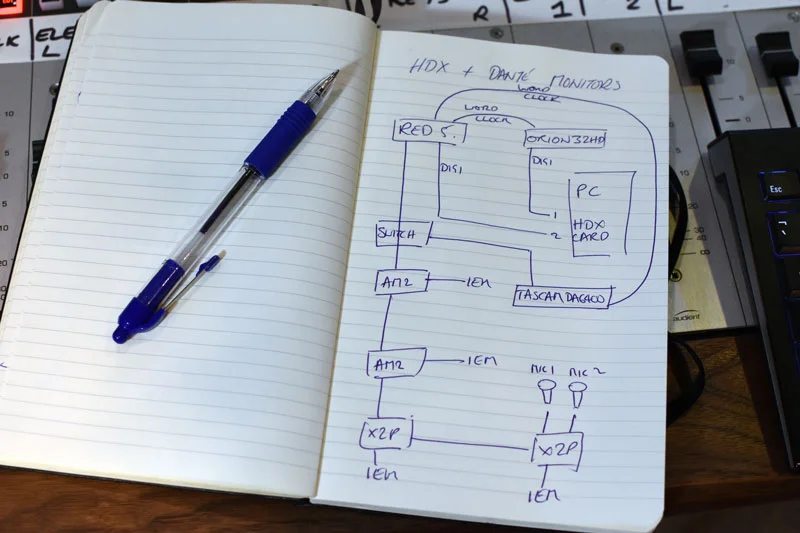 ELE
L
R
1
2
L
HDX + DANTÉ MONITORS
WORD
CLOCK
WORD
CLOCK
RED 5.
ORION32HD
DIGI
DIGI
PC
1
HDX
2
CARD
SWITCH
AM2
IEM
TASCAM
AM2
IEM
MIC1
MIC 2
X2P
X2P
IEM
IEM
Esc
audient